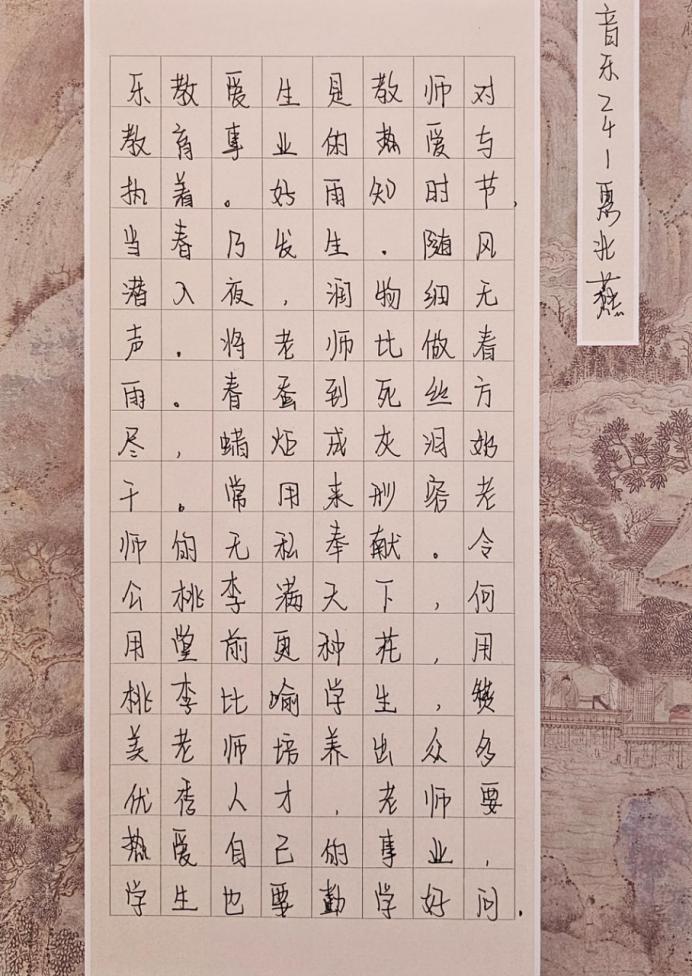 乐教爱生是教师对
教育事业的热爱与
执着。好雨知时节,
当春乃发生.随风
潜入夜,润物细无
声.将老师比做春
雨。春蚕到死丝方
尽,蜡炬成灰泪始
干。常用来形容老
师的无私奉献。令
公桃李满天下,何
用堂前更种花,用
桃李比喻学生,赞
美老师培养出众多
优秀人才,老师要
热爱自己的事业,
学生也要勤学好问.
音乐241 燕